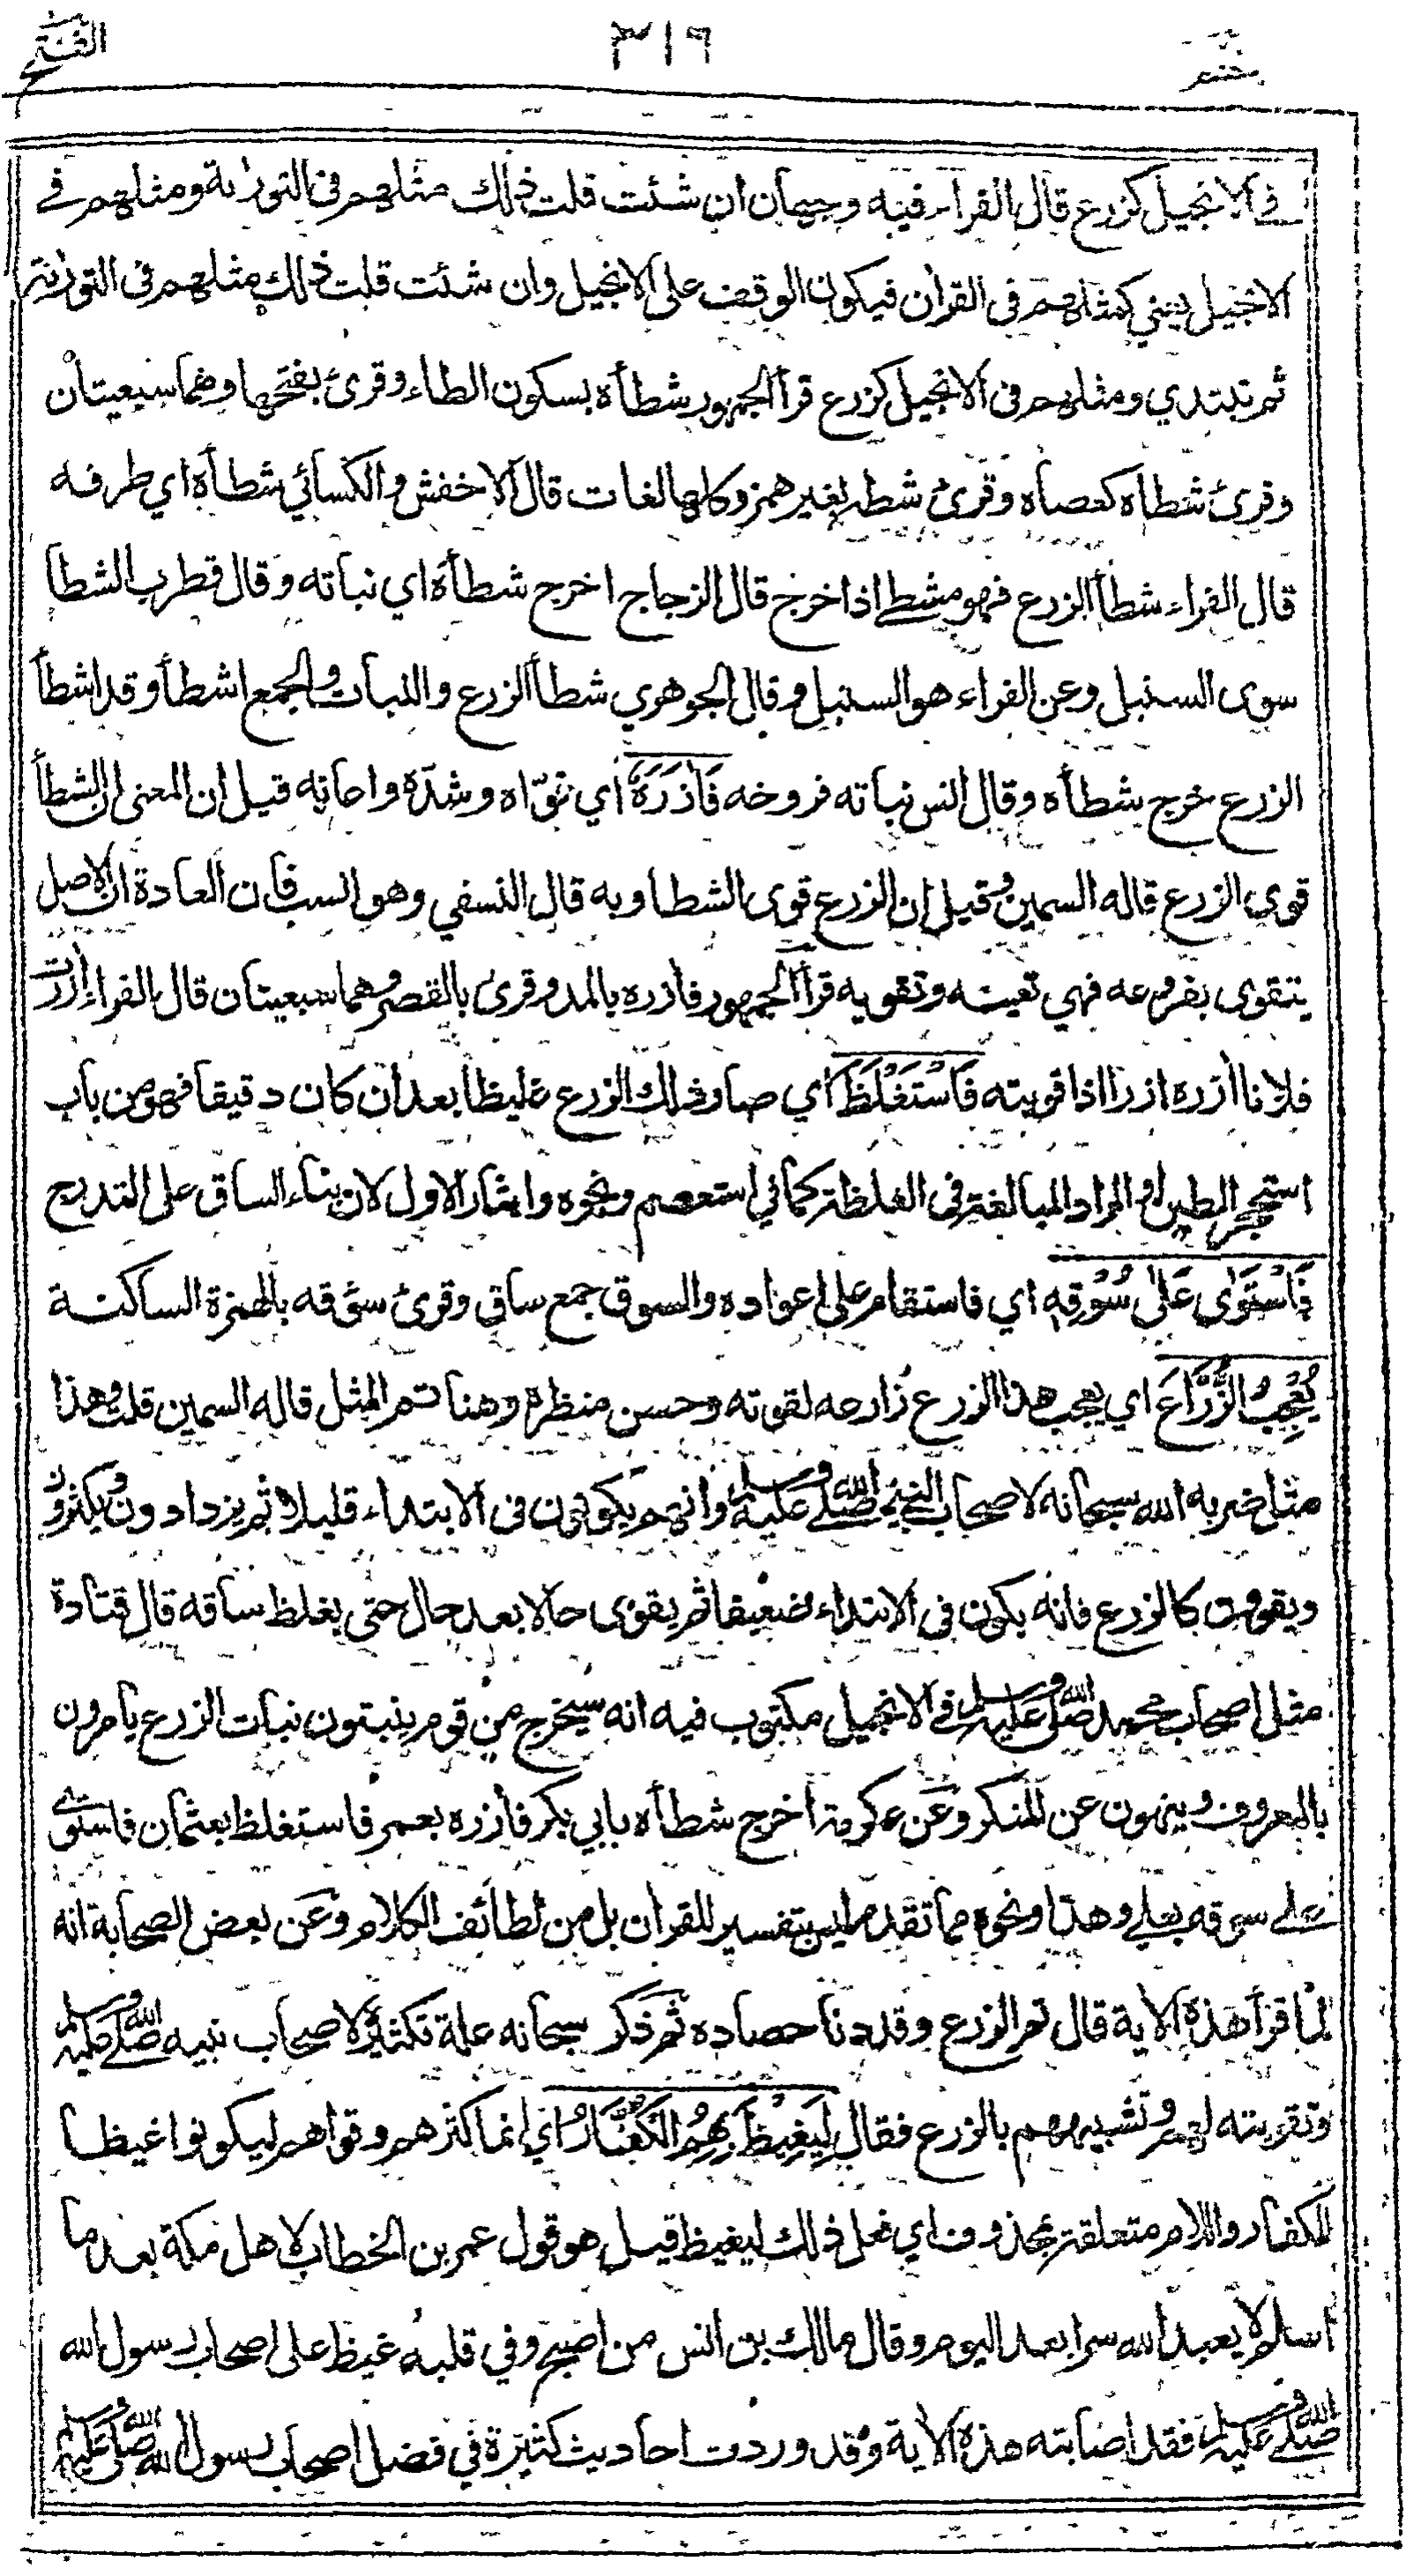 الفتح
٣١٩
حٰمٓ
في الانجيل كزرع قال الفراء فيه وجهان ان شئت قلت ذلك مثلهم في التوراية ومثلهم في
الانجيل يعني كمثلهم في القران فيكون الوقف على الانجيل وان شئت قلت ذلك مثلهم في التوراية
ثم تبتدي ومثلهم في الانجيل كزرع قرأ الجمهور شطأه بسكون الطاء وقرئ بفتحها وهما سبعيتان
وقرئ شطاه كعصاه وقرئ شطه بغير همز وكلها لغات قال الاخفش والكسائي شطأه اي طرفه
قال الفراء شطأ الزرع فهو مشطئ اذا خرج قال الزجاج اخرج شطأه اي نباته وقال قطرب الشطا
سوى السنبل وعن الفراء هو السنبل وقال الجوهري شطأ الزرع والنبات والجمع اشطأ وقد اشطأ
الزرع خرج شطأه وقال انس نباته فروخه فَاٰزَرَهٗ اي قوّاه وشدّه واعانه قيل ان المعنى ان الشطأ
قوى الزرع قاله السمين وقيل ان الزرع قوى الشطا وبه قال النسفي وهو انسب فان العادة ان الاصل
يتقوى بفروعه فهي تعينه وتقويه قرأ الجمهور فأزره بالمد وقرئ بالقصر وهما سبعيتان قال الفراء أزرت
فلانا اأزره ازرا اذا قويته فَاسْتَغْلَظَ اي صار ذلك الزرع غليظا بعد ان كان دقيقا فهو من باب
استحجر الطين او المراد المبالغة في الغلظة كما في استعصم ونحوه وايثار الاول لان بناء الساق على التدرج
فَاسْتَوٰى عَلٰى سُوْقِهٖ اي فاستقام على اعواده والسوق جمع ساق وقرئ سؤقه بالهمزة الساكنة
يُعْجِبُ الزُّرَّاعَ اي يعجب هذا الزرع زارعه لقوته وحسن منظره وهنا تم المثل قاله السمين قلت وهذا
مثل ضربه الله سبحانه لاصحاب النبي صلى الله عليه وسلم وانهم يكونون في الابتداء قليلا ثم يزدادون ويكثرون
ويقوون كالزرع فانه يكون في الابتداء ضعيفا ثم يقوى حالا بعد حال حتى يغلظ ساقه قال قتادة
مثل اصحاب محمد صلى الله عليه وسلم في الانجيل مكتوب فيه انه سيخرج من قوم ينبتون نبات الزرع يامرون
بالمعروف وينهون عن المنكر وعن عكرمة اخرج شطأه بابي بكر فأزره بعمر فاستغلظ بعثمان فاستوى
على سوقه بعلي وهذا ونحوه مما تقدم ليس بتفسير للقران بل من لطائف الكلام وعن بعض الصحابة انه
لما قرأ هذه الاية قال تم الزرع وقد دنا حصاده ثم ذكر سبحانه علة تكثيره لاصحاب نبيه صلى الله عليه وسلم
وتقويته لهم وتشبيههم بالزرع فقال لِيَغِيْظَ بِهِمُ الْكُفَّارَ اي انما كثرهم وقواهم ليكونوا غيظا
للكفار واللام متعلقة بمحذوف اي فعل ذلك ليغيظ قيل هو قول عمر بن الخطاب لاهل مكة بعد ما
اسلم لا يعبد الله سرا بعد اليوم وقال مالك بن انس من اصبح وفي قلبه غيظ على اصحاب رسول الله
صلى الله عليه وسلم فقد اصابته هذه الاية وقد وردت احاديث كثيرة في فضل اصحاب رسول الله صلى الله عليه وسلم